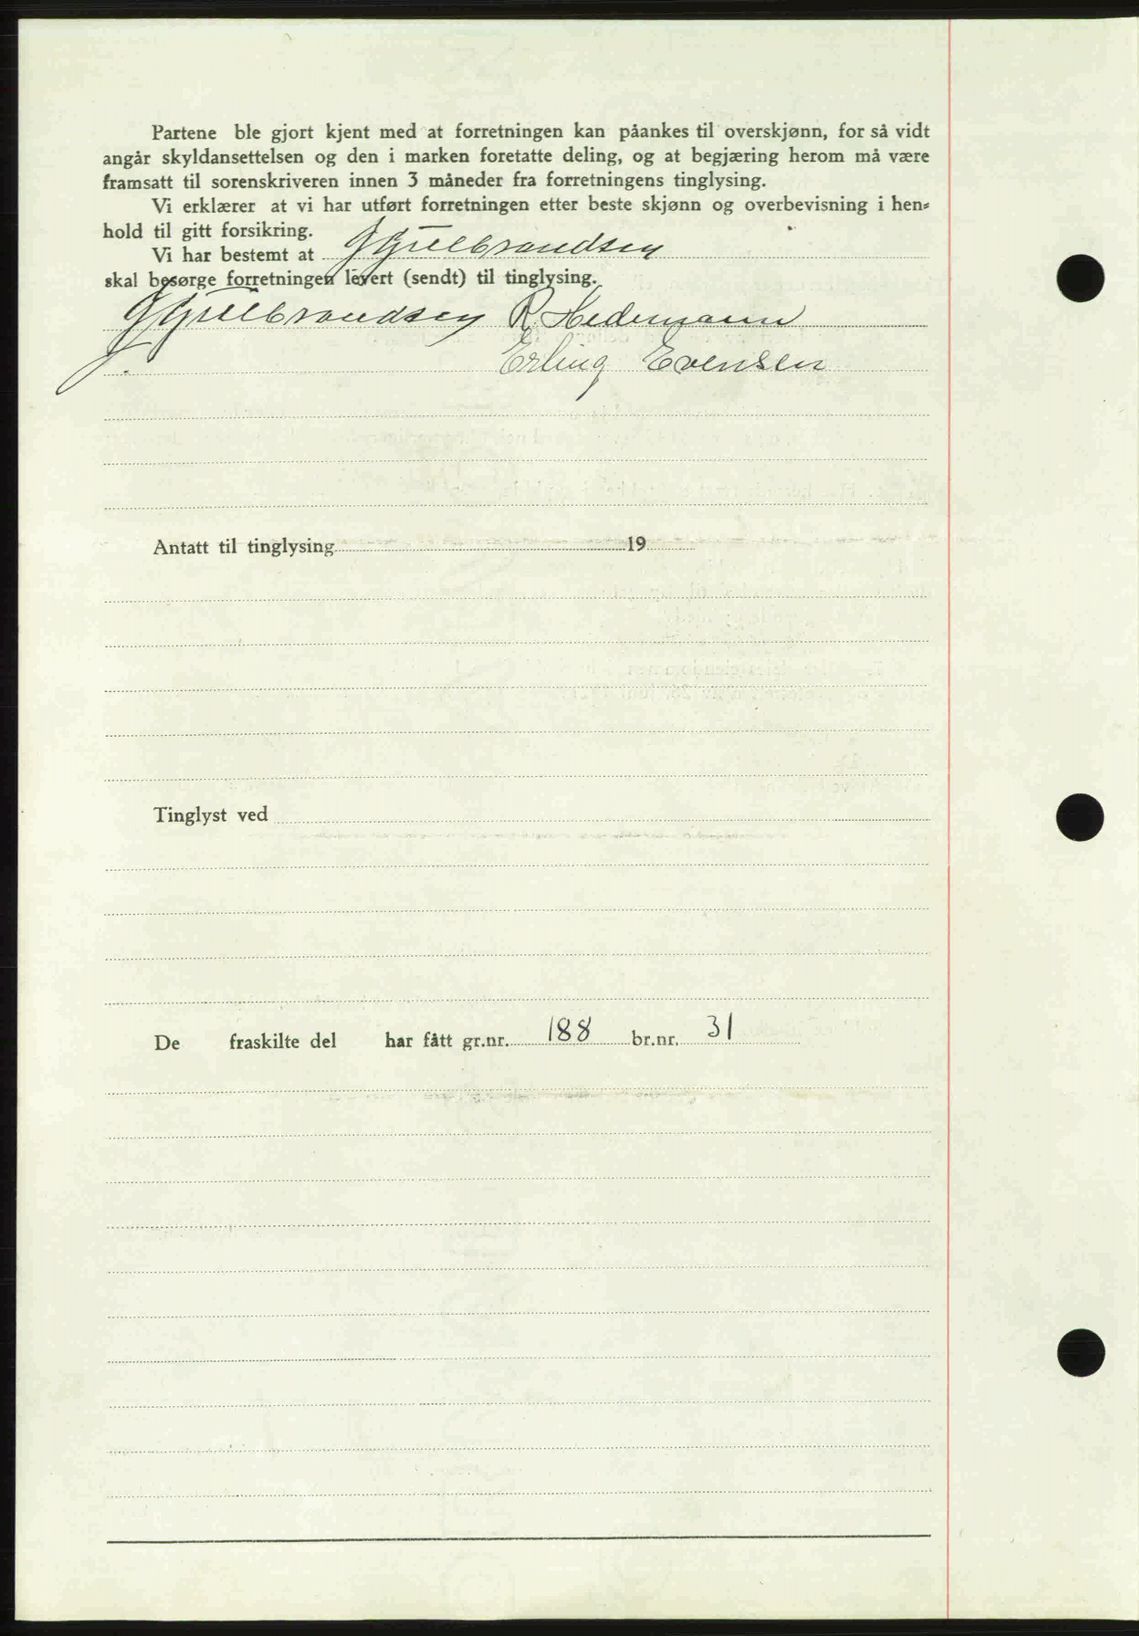 Partene ble gjort kjent med at forretningen kan påankes til overskjønn, for så vidt
angår skyldansettelsen og den i marken foretatte deling, og at begjæring herom må være
framsatt til sorenskriveren innen 3 måneder fra forretningens tinglysing.
Vi erklærer at vi har utført forretningen etter beste skjønn og overbevisning i hen-
hold til gitt forsikring.
Vi har bestemt at
skal besørge forretningen levert (sendt) til tinglysing.
R. Hedemann
Erling Evensen
Antatt til tinglysing 19
Tinglyst ved
De fraskilte del har fått gr.nr. 188 br.nr. 31